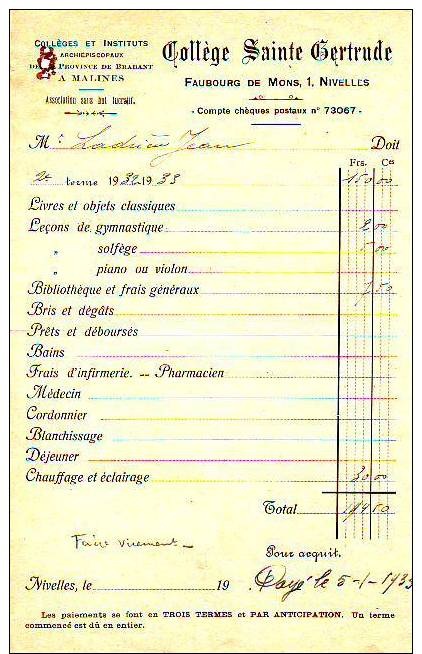 COLLÈGES ET INSTITUTS
ARCHIÉPISCOPAUX
DE PROVINCE DE BRABANT
A MALINES
Association sans but lucratif.
Collège Sainte Gertrude
FAUBOURG DE MONS, 1, NIVELLES
- Compte chèques postaux n° 73067 -
Mr Ladrière Jean Doit
Frs. Ces
2e terme 1932-1933 150 00
Livres et objets classiques
Leçons de gymnastique 2 00
„ solfège 5 00
„ piano ou violon
Bibliothèque et frais généraux 7 50
Bris et dégâts
Prêts et déboursés
Bains
Frais d'infirmerie. -- Pharmacien
Médecin
Cordonnier
Blanchissage
Déjeuner
Chauffage et éclairage 30 00
Total 194 50
Faire virement
Pour acquit.
Nivelles, le 19 Payé le 5-1-1933
Les paiements se font en TROIS TERMES et PAR ANTICIPATION. Un terme
commencé est dû en entier.